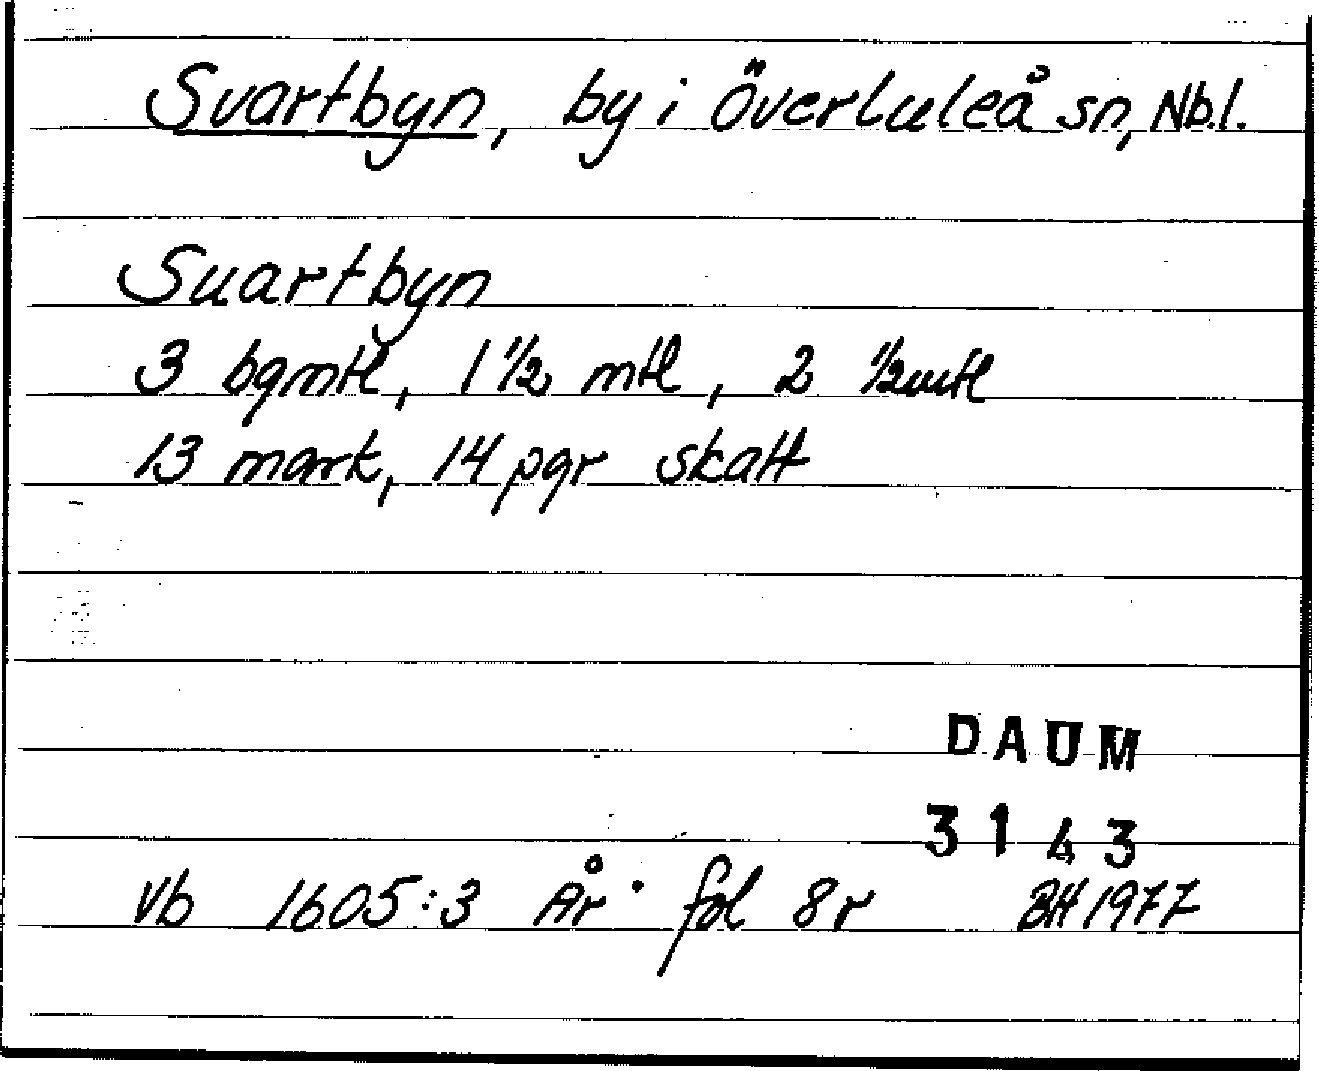 Svartbyn, by i Överluleå sn, Nb.l.
Suartbyn
3 bgmtl, 1 1/2 mtl, 2 1/2mtl
13 mark, 14 pgr skatt
DAUM
3143
Vb 1605:3 År· fol 8r BH 1977